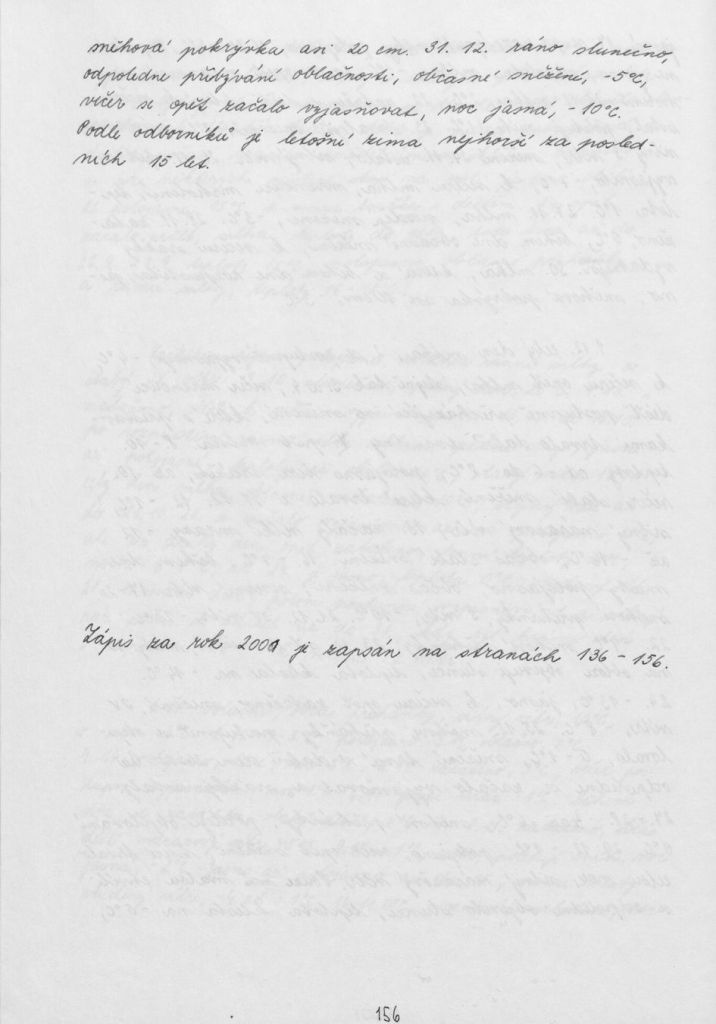 sněhová pokrývka asi 20 cm. 31. 12. ráno slunečno,
odpoledne přibývání oblačnosti, občasné sněžení, -5°C,
večer se opět začalo vyjasňovat, noc jasná, -10°C.
Podle odborníků je letošní zima nejhorší za posled-
ních 15 let.
Zápis za rok 2001 je zapsán na stranách 136 - 156.
156